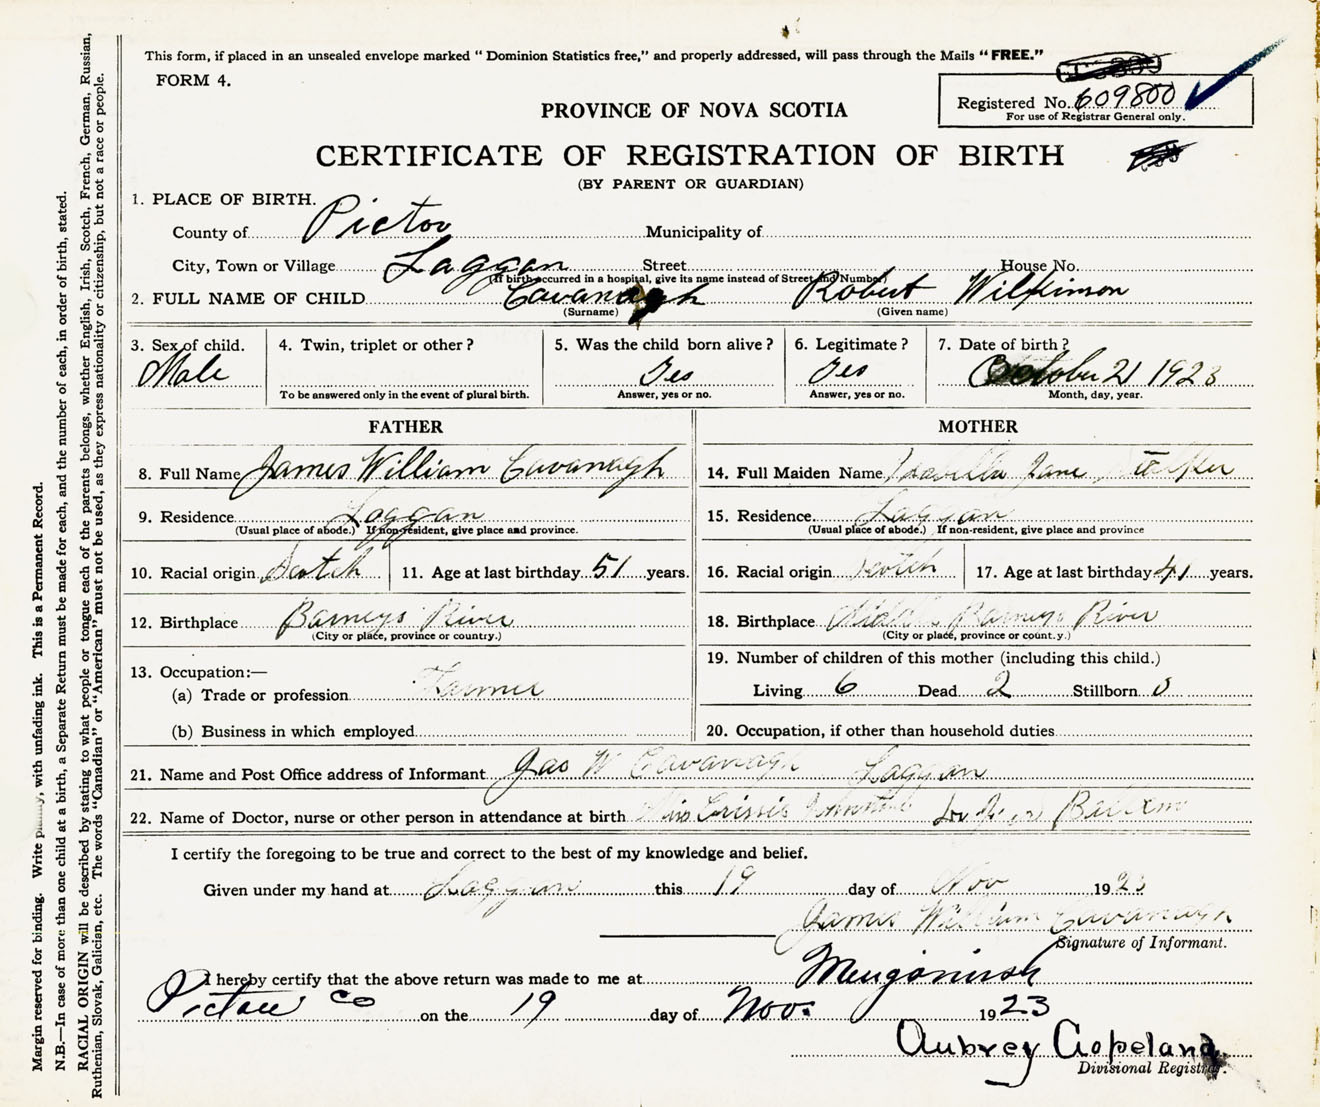 This form, if placed in an unsealed envelope marked “ Dominion Statistics free,” and properly addressed, will pass through the Mails “ FREE.”
FORM 4.
Registered No. 609800
For use of Registrar General only.
PROVINCE OF NOVA SCOTIA
CERTIFICATE OF REGISTRATION OF BIRTH
(BY PARENT OR GUARDIAN)
1. PLACE OF BIRTH.
County of Pictou Municipality of
City, Town or Village Laggan Street House No.
(If birth occurred in a hospital, give its name instead of Street and Number)
2. FULL NAME OF CHILD Cavanagh Robert Wilkinson
(Surname) (Given name)
3. Sex of child. 4. Twin, triplet or other? 5. Was the child born alive? 6. Legitimate? 7. Date of birth?
Male Yes Yes October 21 1923
To be answered only in the event of plural birth. Answer, yes or no. Answer, yes or no. Month, day, year.
FATHER MOTHER
8. Full Name James William Cavanagh 14. Full Maiden Name Isabella Jane Stalker
9. Residence Laggan 15. Residence Laggan
(Usual place of abode.) If non-resident, give place and province. (Usual place of abode.) If non-resident, give place and province
10. Racial origin Scotch 11. Age at last birthday 51 years. 16. Racial origin Scotch 17. Age at last birthday 41 years.
12. Birthplace Barneys River 18. Birthplace Middle Barneys River
(City or place, province or country.) (City or place, province or count.y.)
13. Occupation:— 19. Number of children of this mother (including this child.)
(a) Trade or profession Farmer Living 6 Dead 2 Stillborn 0
(b) Business in which employed 20. Occupation, if other than household duties
21. Name and Post Office address of Informant Jas W Cavanagh Laggan
22. Name of Doctor, nurse or other person in attendance at birth Miss Crissie
I certify the foregoing to be true and correct to the best of my knowledge and belief.
Given under my hand at Laggan this 19 day of Nov 1923
James William Cavanagh
Signature of Informant.
I hereby certify that the above return was made to me at
Pictou Co on the 19 day of Nov. 1923
Aubrey Copeland
Divisional Registrar.
Margin reserved for binding. Write plainly, with unfading ink. This is a Permanent Record.
N.B.—In case of more than one child at a birth, a Separate Return must be made for each, and the number of each, in order of birth, stated.
RACIAL ORIGIN will be described by stating to what people or tongue each of the parents belongs, whether English, Irish, Scotch, French, German, Russian,
Ruthenian, Slovak, Galician, etc. The words “Canadian” or “American” must not be used, as they express nationality or citizenship, but not a race or people.